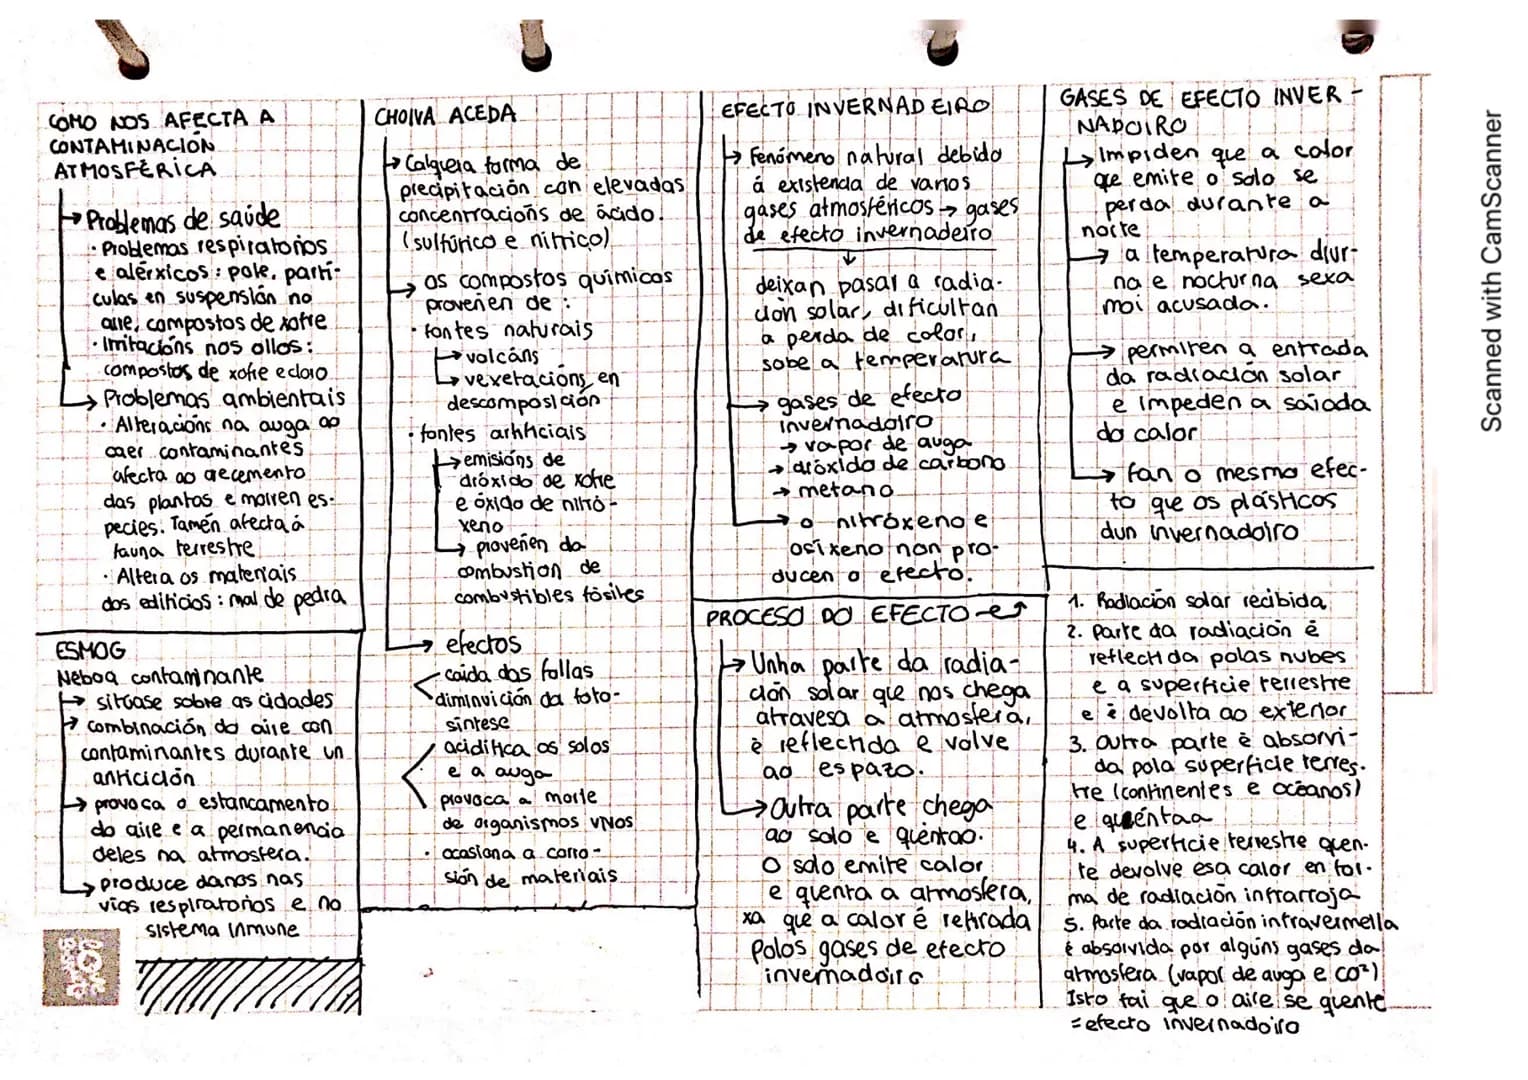 COMO NOS AFECTA A
CONTAMINACIÓN
ATMOSFÉRICA
→ Problemas de saúde
· Problemas respiratorios
e alérxicos: pole, partí-
culas en suspensión no
aire, compostos de xofre
· Irritacións nos ollos:
compostos de xofre e cloro
→ Problemas ambientais
· Alteracións na auga ao
caer contaminantes
afecta ao crecemento
das plantas e morren es-
pecies. Tamén afecta á
fauna terrestre
· Altera os materiais
dos edificios: mal de pedra
ESMOG
Neboa contaminante
→ sitúase sobre as cidades
→ combinación do aire con
contaminantes durante un
anticiclón
→ provoca o estancamento
do aire e a permanencia
deles na atmosfera.
→ produce danos nas
vías respiratorios e no
sistema inmune
CHOIVA ACEDA
→ Calquera forma de
precipitación con elevadas
concentracións de ácido.
(sulfúrico e nítrico)
→ os compostos químicos
proveñen de:
· fontes naturais
→ volcáns
→ vexetacións en
descomposición
· fontes artificiais
→ emisións de
dióxido de xofre
e óxido de nitró-
xeno
→ proveñen da
combustion de
combustibles fósiles
→ efectos
caida das follas
diminuición da foto-
síntese
acidifica os solos
e a auga
provoca a morte
de organismos vivos
· ocasiona a corro-
sión de materiais
EFECTO INVERNADEIRO
→ Fenómeno natural debido
á existencia de varios
gases atmosféricos → gases
de efecto invernadeiro
↓
deixan pasar a radia-
ción solar, dificultan
a perda de calor,
sobe a temperatura
→ gases de efecto
invernadoiro
→ vapor de auga
→ dióxido de carbono
→ metano
→ o nitróxeno e
osíxeno non pro-
ducen o efecto.
PROCESO DO EFECTO
→ Unha parte da radia-
ción solar que nos chega
atravesa a atmosfera,
é reflectida e volve
ao espazo.
→ Outra parte chega
ao solo e quéntao.
O solo emite calor
e quenta a atmosfera,
xa que a calor é retirada
polos gases de efecto
invernadoiro
GASES DE EFECTO INVER-
NADOIRO
→ Impiden que a calor
que emite o solo se
perda durante a
noite
→ a temperatura diur-
na e nocturna sexa
moi acusada.
→ permiten a entrada
da radiación solar
e impeden a saíada
do calor
→ fan o mesmo efec-
to que os plásticos
dun invernadoiro
1. Radiación solar recibida
2. Parte da radiación é
reflectida polas nubes
e a superficie terrestre
e é devolta ao exterior
3. Outra parte é absorvi-
da pola superficie terres-
tre (continentes e océanos)
e quéntaa
4. A superficie terrestre quen-
te devolve esa calor en for-
ma de radiación infrarroja
5. Parte da radiación infravermella
é absorvida por algúns gases da
atmosfera (vapor de auga e CO²)
Isto fai que o aire se quente
= efecto invernadoiro
Scanned with CamScanner